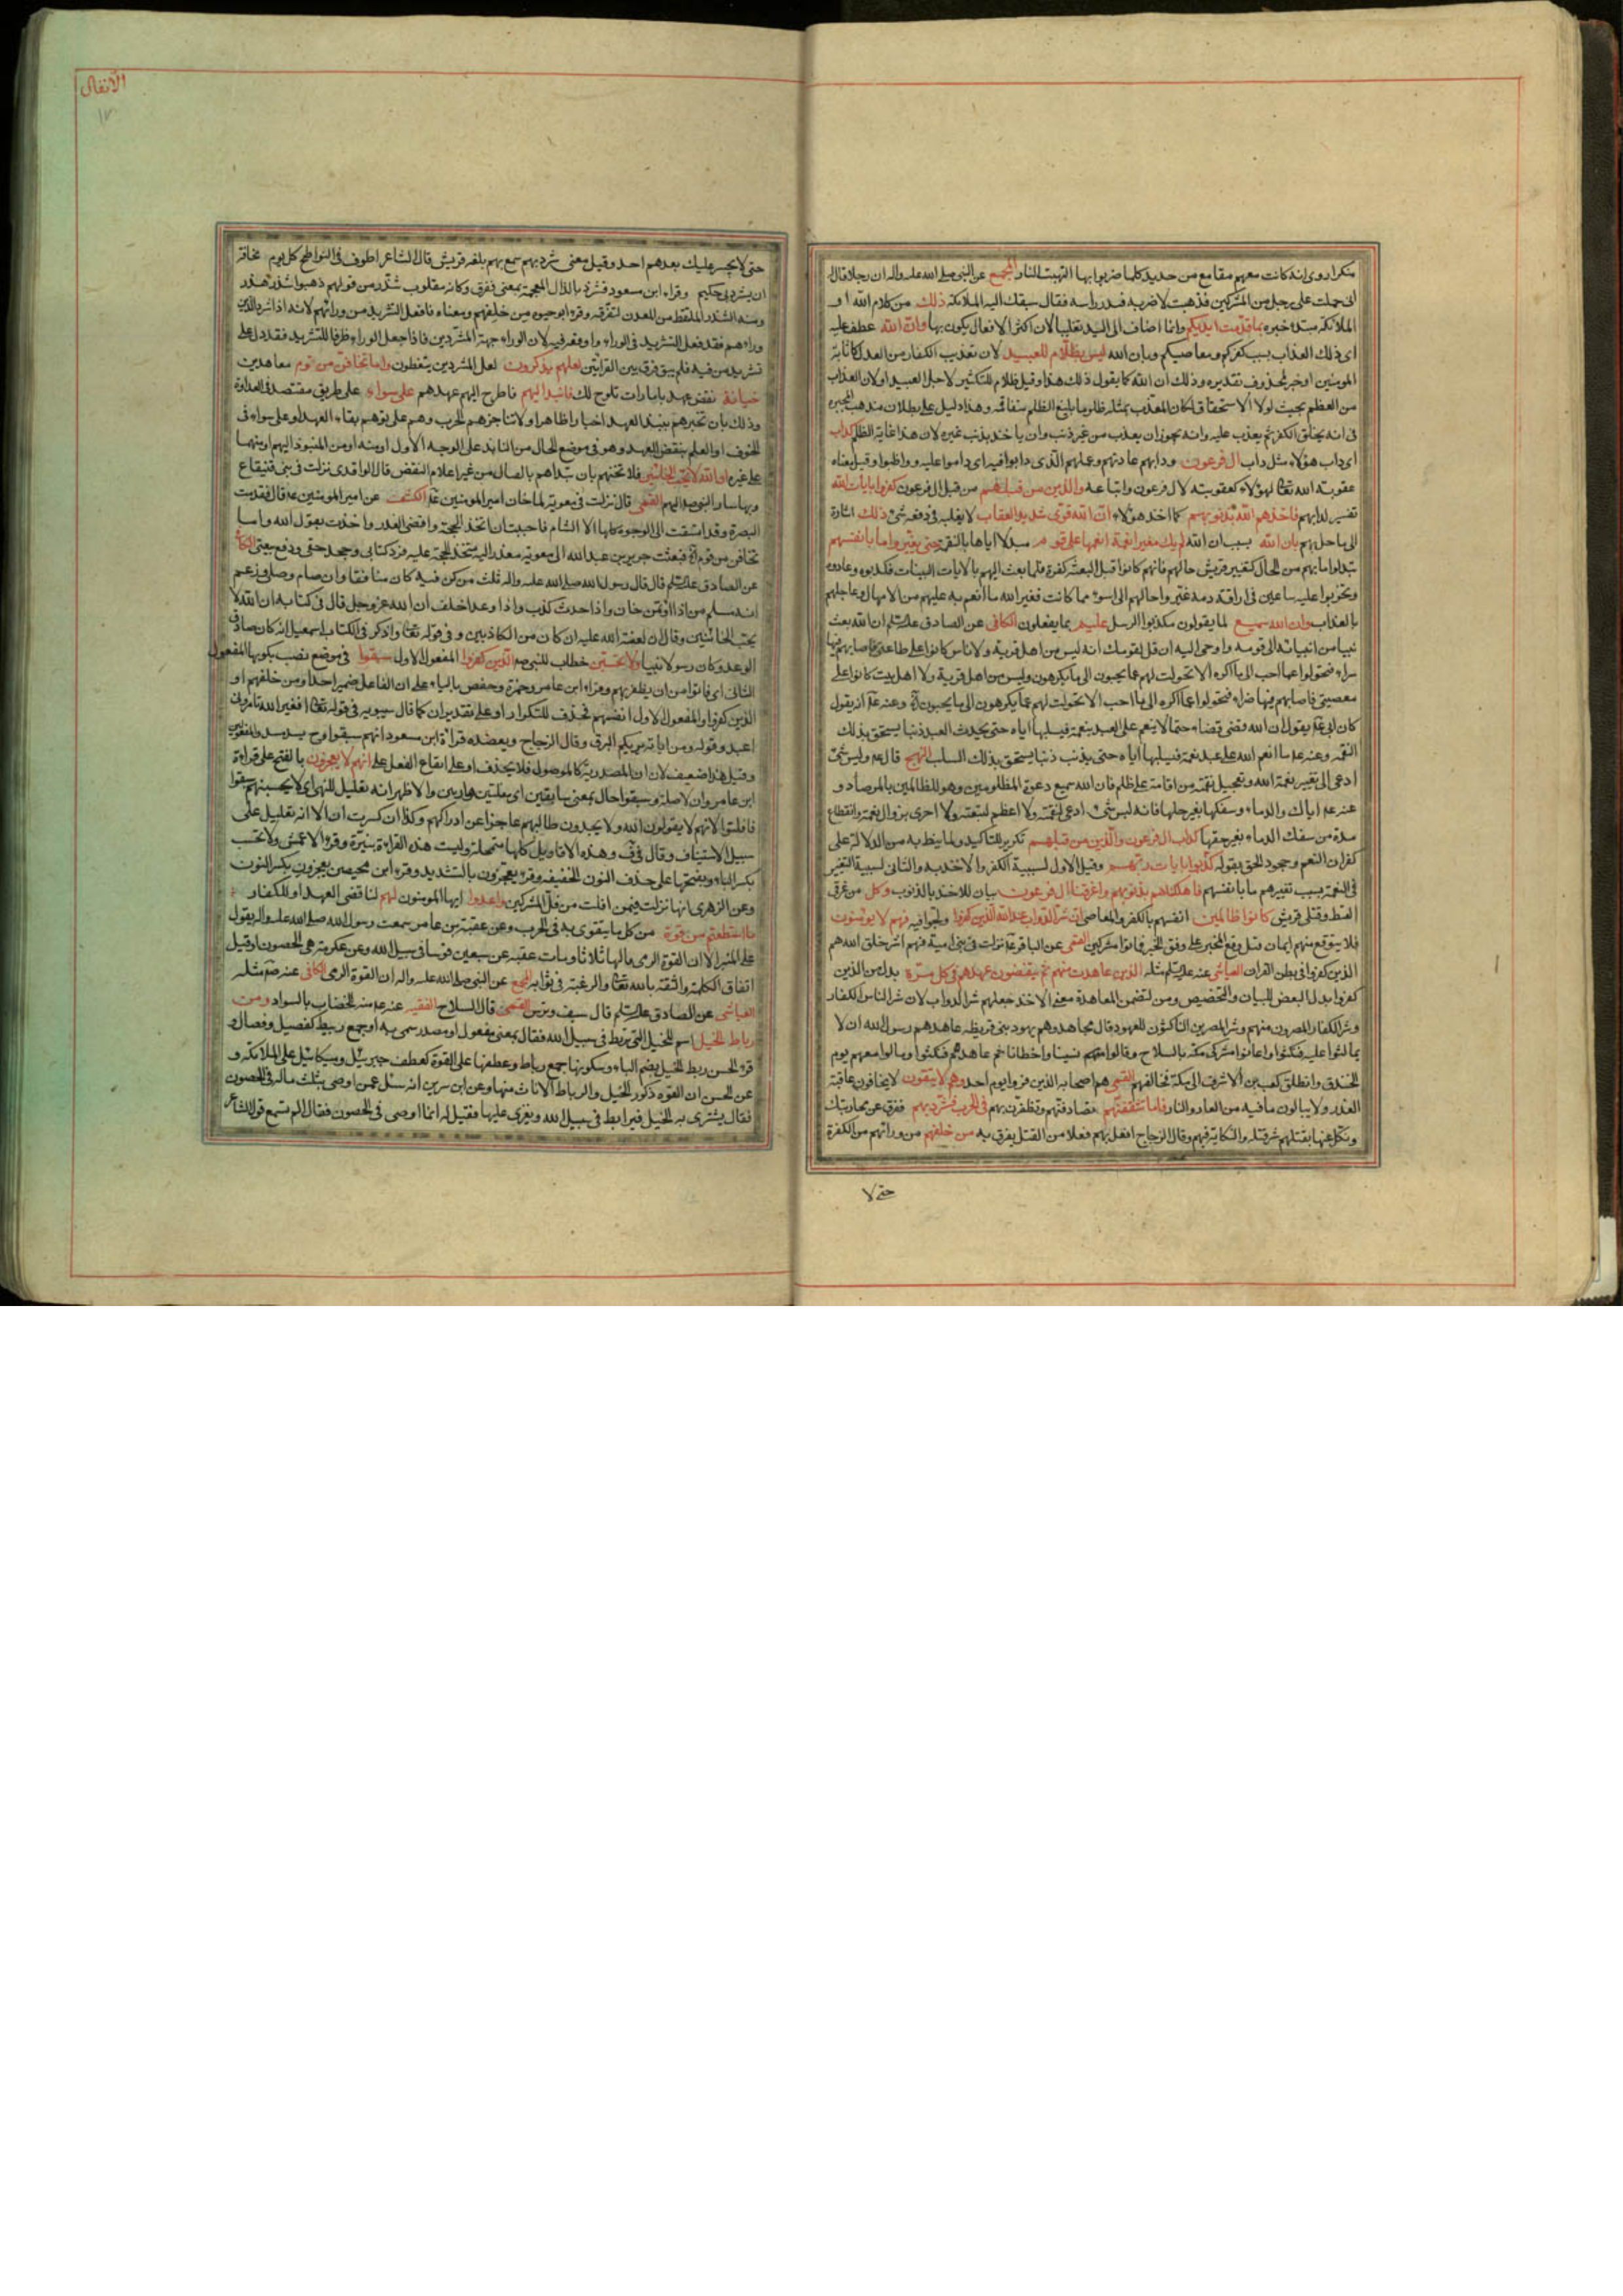 منكرا روى انه كانت معهم مقامع من حديد كلما ضربوا بها التهبت النار المجمع عن النبي صلى الله عليه واله ان رجلا قال
انى حملت على رجل من المشركين فذهبت لاضربه فبدر راسه فقال سبقك اليه الملائكة ذلك من كلام الله او
الملائكة مبتدا خبره بما قدمت ايديكم وانما اضاف الى اليد تغليبا لان اكثر الافعال يكون بها وان الله عطف عليه
اى ذلك العذاب بسبب كفركم ومعاصيكم وبان الله ليس بظلام للعبيد لان تعذيب الكفار من العدل كاثابة
المومنين او خبر لمحذوف تقديره وذلك ان الله كما يقول ذلك هذا وقيل ظلام للتكثير لاجل العبيد او لان العذاب
من العظم بحيث لولا الاستحقاق لكان المعذب بمثله ظلوما بليغ الظلم متفاقمه وهذا دليل على بطلان مذهب المجبرة
فى انه يخلق الكفر ثم يعذب عليه وانه يجوز ان يعذب من غير ذنب وان ياخذ بذنب غيره لان هذا غاية الظلم كداب
اى داب هؤلاء مثل داب ال فرعون ودابهم عادتهم وعملهم الذى دابوا فيه اى داموا عليه وواظبوا وقيل معناه
عقوبة الله تعالى لهؤلاء كعقوبته لال فرعون واتباعه والذين من قبلهم من قبل ال فرعون كفروا بايات الله
تفسير لدابهم فاخذهم الله بذنوبهم كما اخذ هؤلاء ان الله قوى شديد العقاب لا يغلبه فى دفعه شئ ذلك اشارة
الى ما حل بهم بان الله بسبب ان الله لم يك مغيرا نعمة انعمها على قوم مبدلا اياها بالنقمة حتى يغيروا ما بانفسهم
يبدلوا ما بهم من الحال كتغيير قريش حالهم فانهم كانوا قبل البعثة كفرة فلما بعث اليهم بالايات البينات فكذبوه وعادوه
وتحزبوا عليه ساعين فى اراقة دمه غير واحالهم الى اسوء مما كانت فغير الله ما انعم به عليهم من الامهال وعاجلهم
بالعذاب وان الله سميع لما يقولون مكذبوا الرسل عليم بما يفعلون الكافى عن الصادق عليه السلم ان الله بعث
نبيا من انبيائه الى قومه واوحى اليه ان قل لقومك انه ليس من اهل قرية ولا ناس كانوا على طاعتى فاصابهم فيها
سراء فتحولوا عما احب الى ما اكره الا تحولت لهم عما يحبون الى ما يكرهون وليس من اهل قرية ولا اهل بيت كانوا على
معصيتى فاصابهم فيها ضراء فتحولوا عما اكره الى ما احب الا تحولت لهم عما يكرهون الى ما يحبون وعنه انه يقول
كان ابى يقول ان الله قضى قضاء حتما لا ينعم على العبد بنعمة فيسلبها اياه حتى يحدث العبد ذنبا يستحق بذلك
النقمة وعنه ما انعم الله على عبد نعمة فيسلبها اياه حتى يذنب ذنبا يستحق بذلك السلب النهج قال وليس شئ
ادعى الى تغيير نعمة الله وتعجيل نقمته من اقامة على ظلم فان الله سميع دعوة المظلومين وهو للظالمين بالمرصاد و
عنه اياك والدماء وسفكها بغير حلها فانه ليس شئ ادعى لنقمة ولا اعظم لتبعة ولا احرى بزوال نعمة وانقطاع
مدة من سفك الدماء بغير حقها كداب ال فرعون والذين من قبلهم تكرير للتاكيد ولما ينط به من الدلالة على
كفران النعم وجحود الحق بقوله كذبوا بايات ربهم وقيل الاول لسببية الكفر والاخذ به والثانى لسببية التغيير
فى النعمة بسبب تغييرهم ما بانفسهم فاهلكناهم بذنوبهم واغرقنا ال فرعون بيان للاخذ بالذنوب وكل من غرقى
القبط وقتلى قريش كانوا ظالمين انفسهم بالكفر والمعاصى ان شر الدواب عند الله الذين كفروا ولجوا فيه فهم لا يومنون
فلا يتوقع منهم ايمان فتل وقع المخبر على وفق الخبر فماتوا مشركين القمى عن الباقر نزلت فى بنى امية فهم اشر خلق الله هم
الذين كفروا فى بطن القران العياشى عنه عليه السلم مثله الذين عاهدت منهم ثم ينقضون عهدهم فى كل مرة بدل من الذين
كفروا بدل البعض للبيان والتخصيص ومن لتضمن المعاهدة معنى الاخذ جعلهم شر الدواب لان شر الناس الكفار
وشر الكفار المصرون منهم وشر المصرين الناكثون للعهود قال مجاهد وهم يهود بنى قريظه عاهدهم رسول الله ان لا
يمالئوا عليه فنكثوا واعانوا مشركى مكة بالسلاح وقالوا نسينا واخطانا ثم عاهدهم فنكثوا ومالوا معهم يوم
الخندق وانطلق كعب بن الاشرف الى مكة فحالفهم القمى هم اصحابه الذين فروا يوم احد وهم لا يتقون لا يخافون عاقبة
الغدر ولا يبالون ما فيه من العار والنار فاما تثقفنهم تصادفنهم وتظفرن بهم فى الحرب فشرد بهم ففرق عن محاربتك
ونكل عنها بقتلهم شر قتلة والنكاية فيهم وقال الزجاج افعل بهم فعلا من القتل يفرق به من خلفهم من ورائهم من الكفرة
حتى لا
الانفال
١٧
حتى لا يجسر عليك بعدهم احد وقيل معنى شرد بهم سمع بهم بلغة قريش قال الشاعر اطوف فى النواطح كل يوم مخافة
ان يشرد بى حكيم وقراء ابن مسعود فشرذ بالذال المعجمة بمعنى ففرق وكانه مقلوب شذر من قولهم ذهبوا شذر مذر
ومنه الشذر الملتقط من المعدن لتفرقه وقرء ابو حيوة من خلفهم ومعناه فافعل التشريد من ورائهم لانه اذا شرد الذين
وراءهم فقد فعل التشريد فى الوراء واوقعه فيه لان الوراء جهة المشردين فاذا جعل الوراء ظرفا للتشريد فقد دل على
تشريد من فيه فلم يبق فرق بين القرائتين لعلهم يذكرون لعل المشردين يتعظون واما تخافن من قوم معاهدين
خيانة نقض عهد بامارات تلوح لك فانبذ اليهم فاطرح اليهم عهدهم على سواء على طريق مقتصد فى العداوة
وذلك بان تخبرهم بنبذ العهد اخبارا ظاهرا ولا تناجزهم الحرب وهم على توهم بقاء العهد او على سواء فى
الخوف او العلم بنقض العهد وهو فى موضع الحال من النابذ على الوجه الاول او منه او من المنبوذ اليهم او منهما
على غيره ان الله لا يحب الخائنين فلا تخنهم بان تبداهم بالقتال من غير اعلام النقض قال الواقدى نزلت فى بنى قينقاع
وبها سار النبى اليهم القمى قال نزلت فى معوية لما خان امير المومنين الكشف عن امير المومنين قال فقدمت
البصرة وقد اتسقت الى الوجوه كلها الا الشام فاحببت ان اتخذ الحجة واقضى العذر واخذت بقول الله واما
تخافن من قوم فبعثت جرير بن عبد الله الى معوية معذرا اليه متخذ الحجة عليه فرد كتابى وجحد حقى ودفع بيعتى الكافى
عن الصادق عليه السلم قال قال رسول الله صلى الله عليه واله ثلث من كن فيه كان منافقا وان صام وصلى وزعم
انه مسلم من اذا اؤتمن خان واذا حدث كذب واذا وعد اخلف ان الله عز وجل قال فى كتابه ان الله لا
يحب الخائنين وقال ان لعنة الله عليه ان كان من الكاذبين وفى قوله تعالى واذكر فى الكتاب اسمعيل انه كان صادق
الوعد وكان رسولا نبيا ولا تحسبن خطاب للنبى الذين كفروا المفعول الاول سبقوا فى موضع نصب بكونها المفعول
الثانى اى فاتوا من ان يظفر بهم وقراء ابن عامر وحمزة وحفص بالياء على ان الفاعل ضمير احد او من خلفهم او
الذين كفروا والمفعول الاول انفسهم فحذف للتكرار او على تقدير ان كما قال سيبويه فى قوله تعالى افغير الله تامرونى
اعبد وقوله ومن اياته يريكم البرق وقال الزجاج ويعضده قراءة ابن مسعود انهم سبقوا
وقيل هذا ضعيف لان ان المصدرية كالموصول فلا يحذف او على ايقاع الفعل على انهم لا يعجزون بالفتح على قراءة
ابن عامر وان لا صلة وسبقوا حال بمعنى سابقين اى مفلتين هاربين والاظهر انه تعليل للنهى اى لا تحسبنهم سبقوا
فافلتوا لانهم لا يفوتون الله ولا يجدون طالبهم عاجزا عن ادراكهم وكذا ان كسرت ان الا انه تعليل على
سبيل الاستيناف وقال فى ف وهذه الاقاويل كلها متمحلة وليست هذه القراءة بنيرة وقرء الاعمش ولا تحسب
بكسر الباء وبفتحها على حذف النون الخفيفة وقرء يعجزون بالتشديد وقرء ابن محيصن يعجزون بكسر النون
وعن الزهرى انها نزلت فيمن افلت من فل المشركين واعدوا ايها المومنون لهم لناقضى العهد او للكفار
ما استطعتم من قوة من كل ما يتقوى به فى الحرب وعن عقبة بن عامر سمعت رسول الله صلى الله عليه واله يقول
على المنبر الا ان القوة الرمى قالها ثلاثا ومات عقبة عن سبعين قوسا فى سبيل الله وعن عكرمة هى الحصون وقيل
اتفاق الكلمة والثقة بالله تعالى والرغبة فى ثوابه المجمع عن النبى صلى الله عليه واله ان القوة الرمى الكافى عنه مثله
العياشى عن الصادق عليه السلم قال سيف وترس القمى قال السلاح الفقيه عنه منه الخضاب بالسواد ومن
رباط الخيل اسم للخيل التى تربط فى سبيل الله فعال بمعنى مفعول او مصدر سمى به او جمع ربيط كفصيل وفصال و
قرء الحسن ربط الخيل بضم الباء وسكونها جمع رباط وعطفها على القوة كعطف جبرئيل وميكائيل على الملائكة و
عن الحسن ان القوة ذكور الخيل والرباط الاناث منها وعن ابن سيرين انه سئل عمن اوصى بثلث ماله فى الحصون
فقال يشترى به الخيل فيرابط فى سبيل الله ويغزى عليها فقيل له انما اوصى فى الحصون فقال الم تسمع قول الشاعر